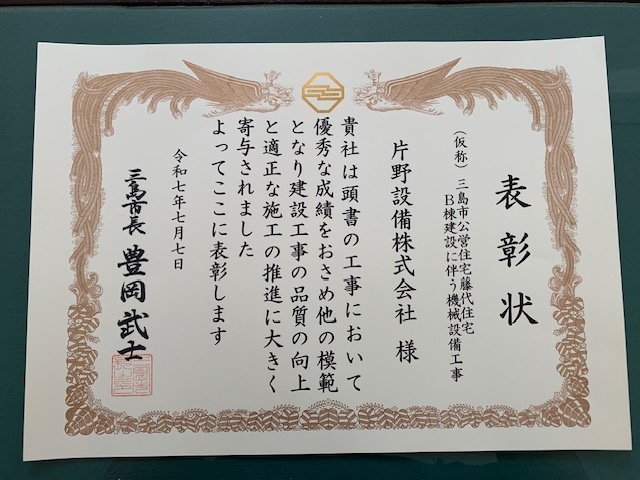 表彰状
（仮称）三島市公営住宅藤代住宅
B棟建設に伴う機械設備工事
片野設備株式会社 様
貴社は頭書の工事において
優秀な成績をおさめ他の模範
となり建設工事の品質の向上
と適正な施工の推進に大きく
寄与されました
よってここに表彰します
令和七年七月七日
三島市長 豊岡武士